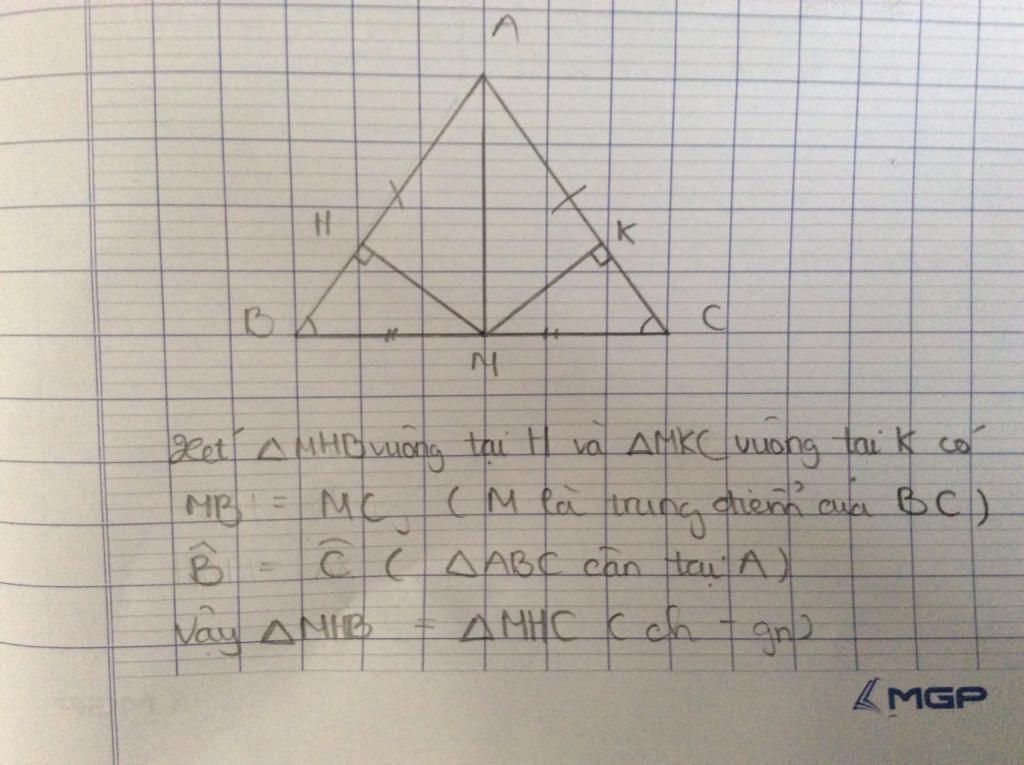 A
H
K
B
C
M
Xét △MHB vuông tại H và △MKC vuông tai K có
MB = MC ( M là trung điểm của BC )
B̂ = Ĉ ( △ABC cân tại A )
Vậy △MHB = △MHC ( ch - gn )
MGP